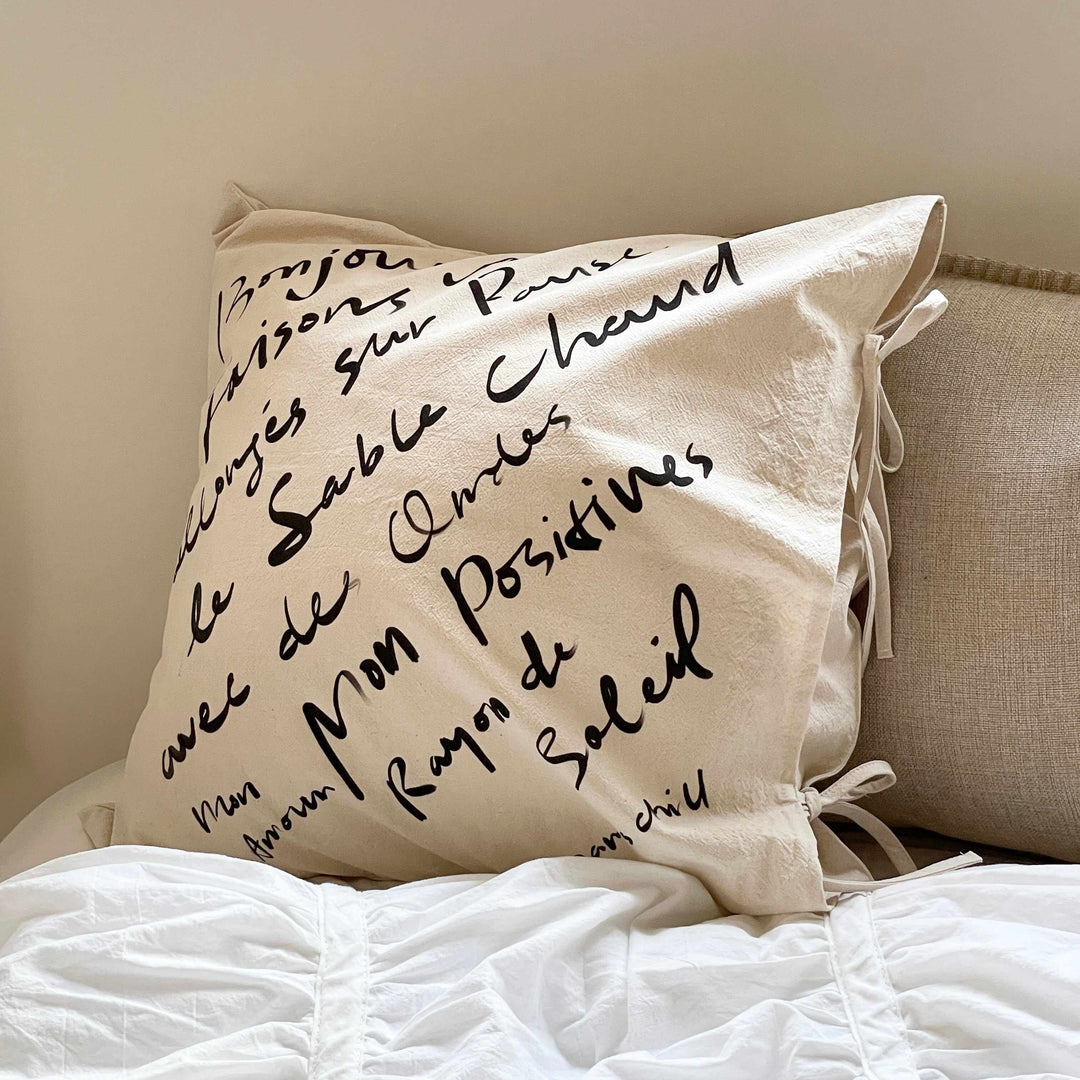 Bonjou
faisons Pause
allongés sur
le Sable Chaud
avec des Ondes
Positives
Mon
Amour
Mon
Rayon de
Soleil
chill